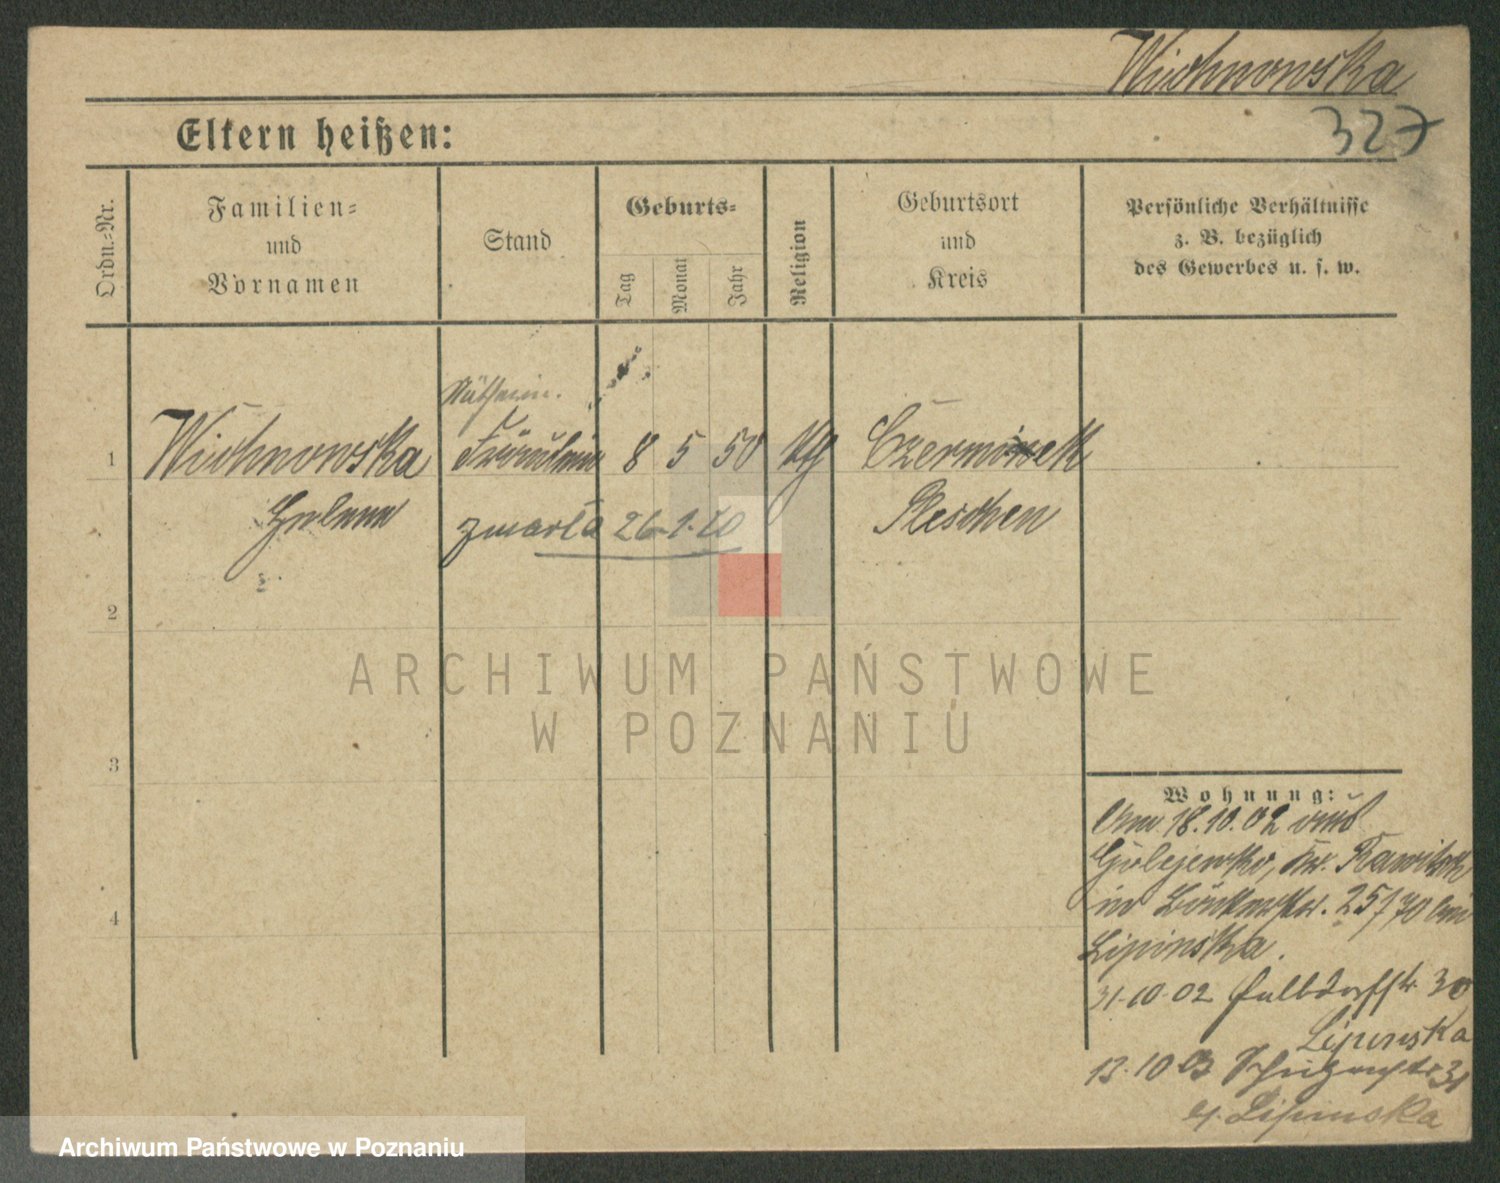 Wichnowska
327
Eltern heißen:
Ordn.-Nr.
Familien-
und
Vornamen
Stand
Geburts-
Tag
Monat
Jahr
Religion
Geburtsort
und
Kreis
Persönliche Verhältnisse
z. B. bezüglich
des Gewerbes u. s. w.
1
Wichnowska
Näherin.
Fräulein
8 5 50
kth
Czerminek
Helene
zmarła 26.1.
Pleschen
2
3
4
Wohnung:
Am 18.10.02 aus
Golejewko, Kr. Rawitsch
in 25/70 bei
Lipinska.
31.10.02 30
Lipinska
13.10 03 31
Lipinska
ARCHIWUM PAŃSTWOWE
W POZNANIU
Archiwum Państwowe w Poznaniu